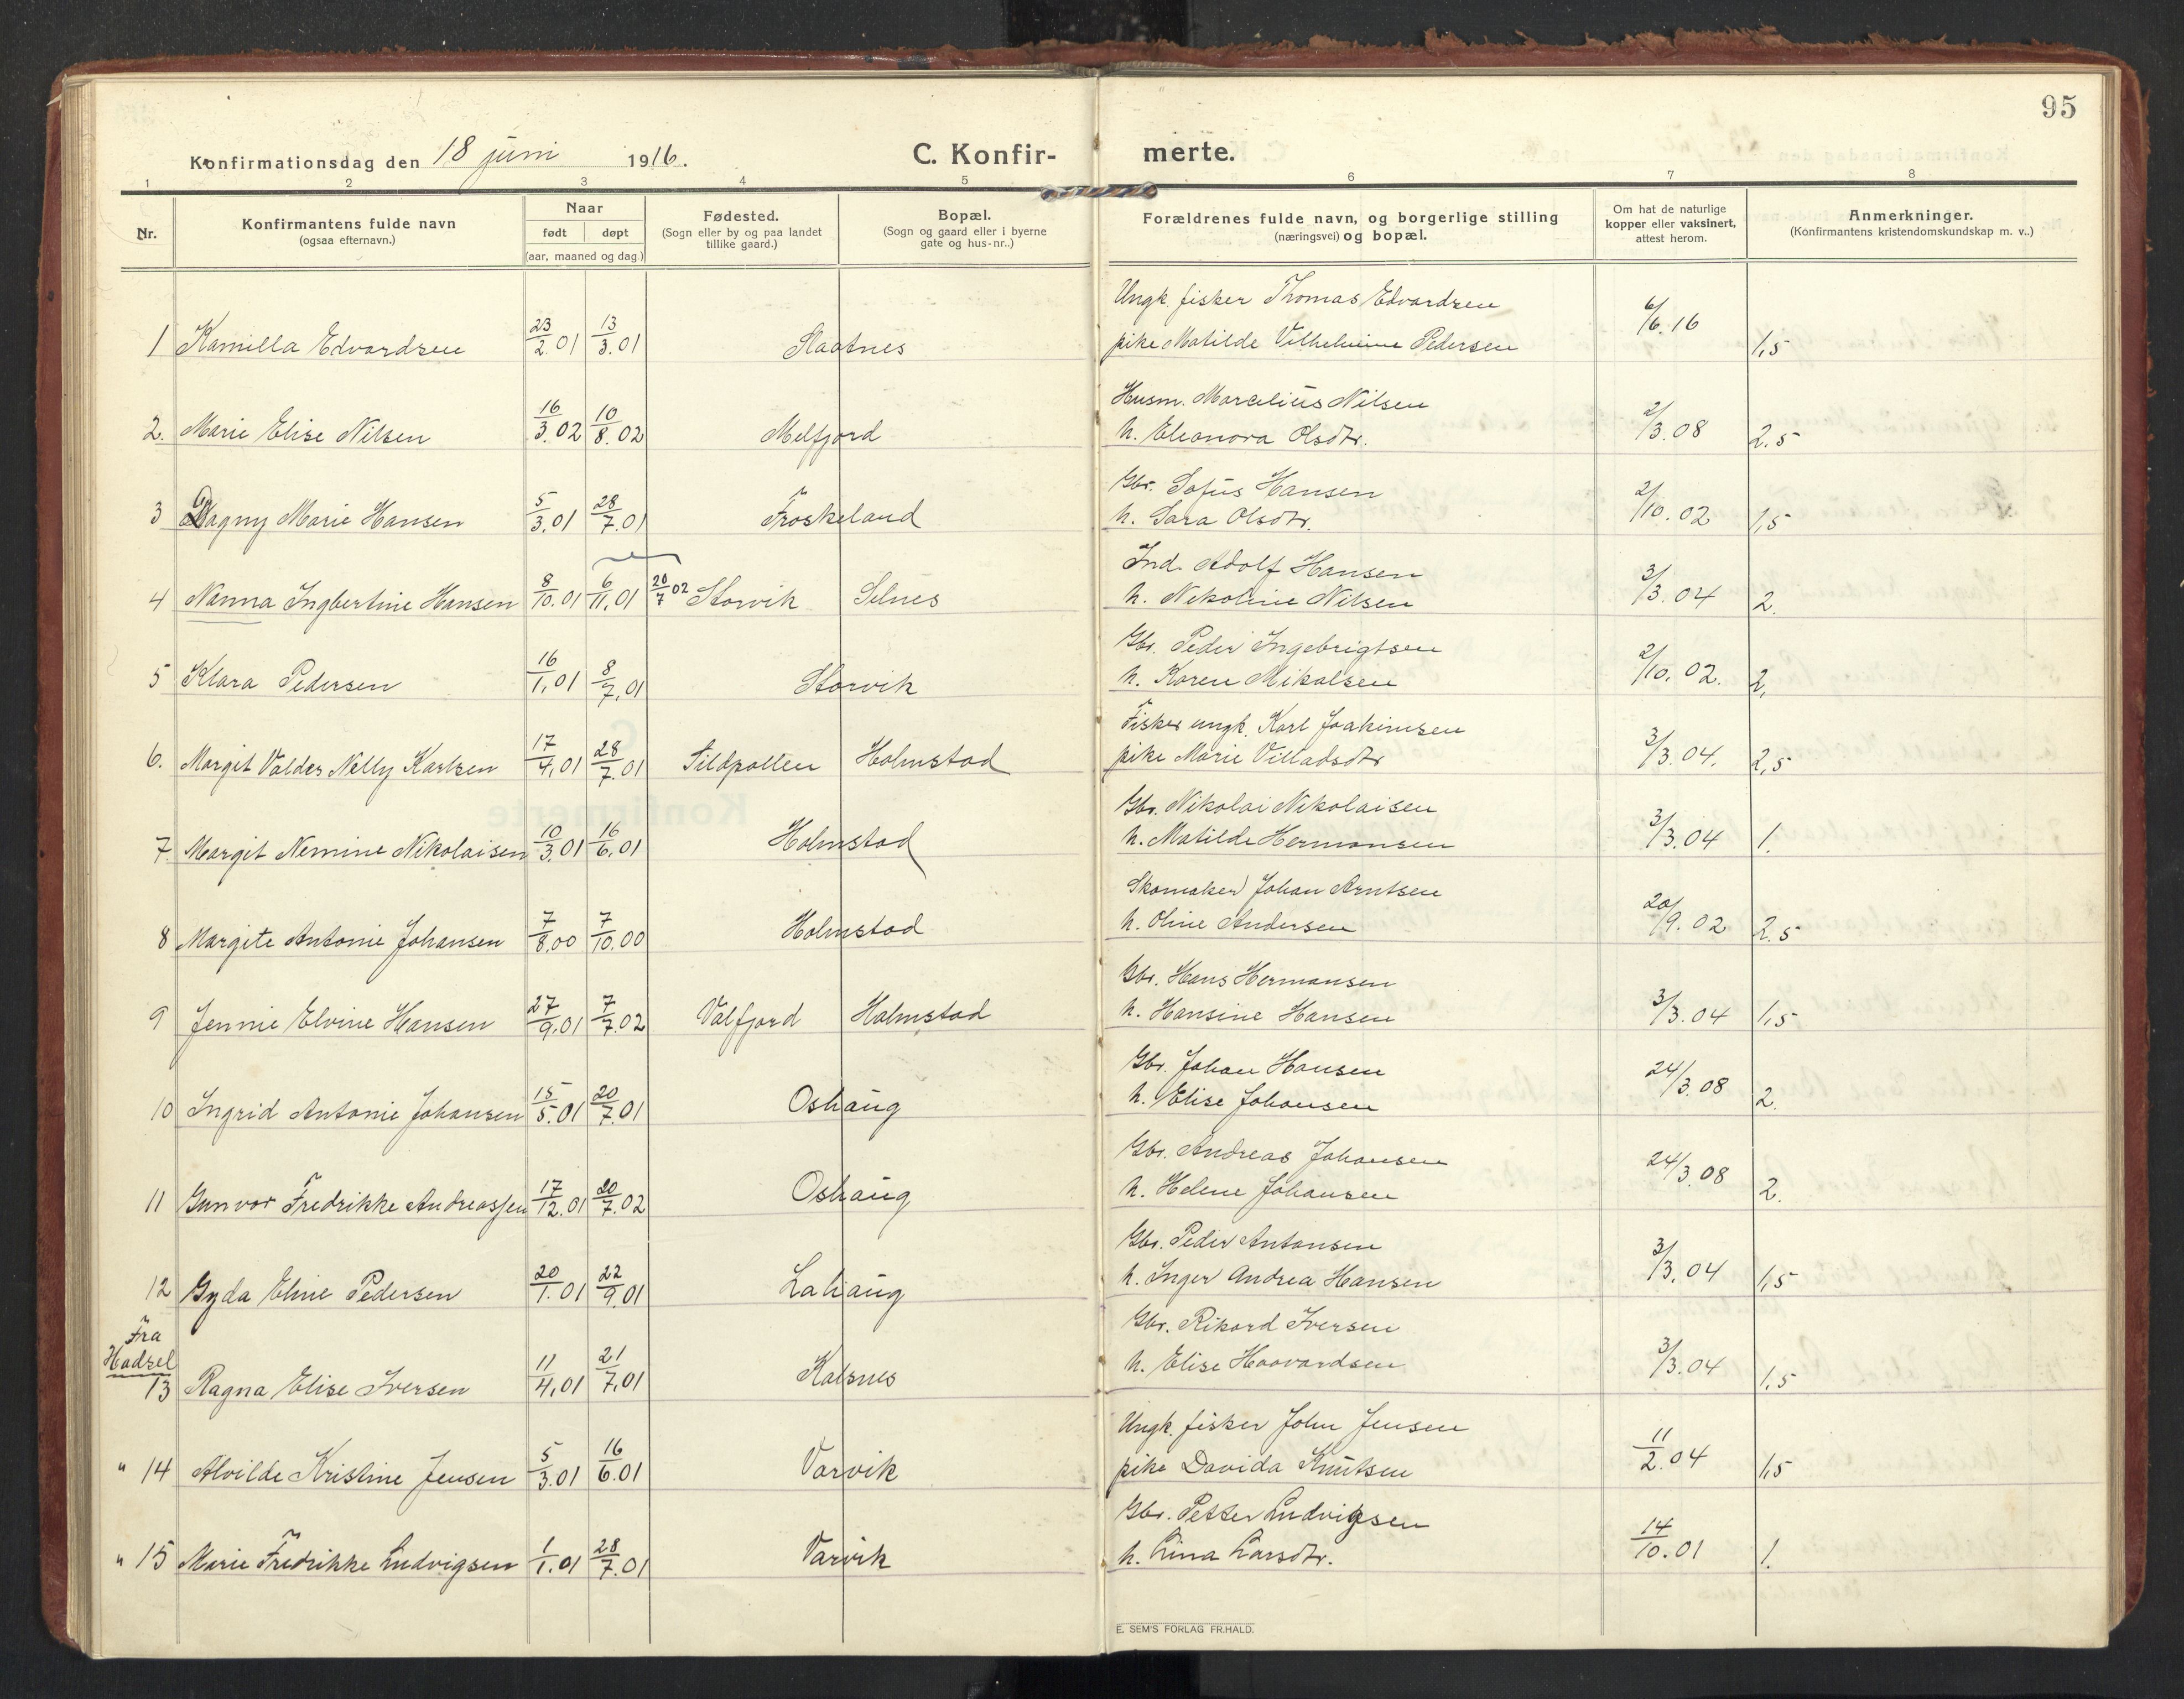 95
Konfirmationsdag den 18 juni 1916.
C. Konfir-
merte.
1 2 3 4 5 6 7 8
Nr.
Konfirmantens fulde navn
(ogsaa efternavn.)
Naar
født døpt
(aar, maaned og dag.)
Fødested.
(Sogn eller by og paa landet
tillike gaard.)
Bopæl.
(Sogn og gaard eller i byerne
gate og hus-nr..)
Forældrenes fulde navn, og borgerlige stilling
(næringsvei) og bopæl.
Om hat de naturlige
kopper eller vaksinert,
attest herom.
Anmerkninger.
(Konfirmantens kristendomskundskap m. v..)
Ungk. fisker Thomas Edvardsen
1 Kamilla Edvardsen 23/2.01 13/3.01 Slaatnes pike Matilde Vilhelmine Pedersen 6/6.16 1,5
Husm. Marcelius Nilsen
2. Marie Elise Nilsen 16/3.02 10/8.02 Melfjord h. Eleonora Olsdtr. 2/3.08 2.5
Gbr. Sofus Hansen
3 Dagny Marie Hansen 5/3.01 28/7.01 Froskeland h. Sara Olsdtr. 2/10.02 1,5
Ind. Adolf Hansen
4 Nanna Ingbertine Hansen 8/10.01 6/11.01 20/7 02 Storvik Selnes h. Nikoline Nilsen 3/3.04 2.
Gbr. Peder Ingebrigtsen
5 Klara Pedersen 16/1.01 8/7.01 Storvik h. Karen Mikalsen 2/10.02. 2.
Fisker ungk. Karl Joakimsen
6. Margit Valdes Nelly Karlsen 17/4.01 28/7.01 Sildpollen Holmstad pike Marie Villadsdtr 3/3.04. 2,5
Gbr. Nikolai Nikolaisen
7. Margit Nemine Nikolaisen 10/3.01 16/6.01 Holmstad h. Matilde Hermansen 3/3.04 1.
Skomaker Johan Arntsen
8 Margite Antonie Johansen 7/8.00 7/10.00 Holmstad h. Oline Andersen 20/9.02 2.5
Gbr. Hans Hermansen
9 Jennie Elvine Hansen 27/9.01 7/7.02 Valfjord Holmstad h. Hansine Hansen 3/3.04 1,5
Gbr. Johan Hansen
10 Ingrid Antonie Johansen 15/5.01 20/7.01 Oshaug h. Elise Johansen 24/3.08 2.
Gbr. Andreas Johansen
11 Gunvor Fredrikke Andreassen 17/12.01 20/7.02 Oshaug h. Helene Johansen 24/3.08 2.
Gbr. Peder Antonsen
12 Gyda Eline Pedersen 20/1.01 22/9.01 Lahaug h. Inger Andrea Hansen 3/3.04 1,5
Fra
Hadsel
Gbr. Rikard Iversen
13 Ragna Elise Iversen 11/4.01 21/7.01 Kalsnes h. Elise Haavardsen 3/3.04 1,5
Ungk. fisker John Jensen
" 14 Alvilde Kristine Jensen 5/3.01 16/6.01 Varvik pike Davida Knutsen 11/2.04 1,5
Gbr. Petter Ludvigsen
" 15 Marie Fredrikke Ludvigsen 1/1.01 28/7.01 Varvik h. Lina Larsdtr. 14/10.01 1.
E. SEM'S FORLAG FR.HALD.